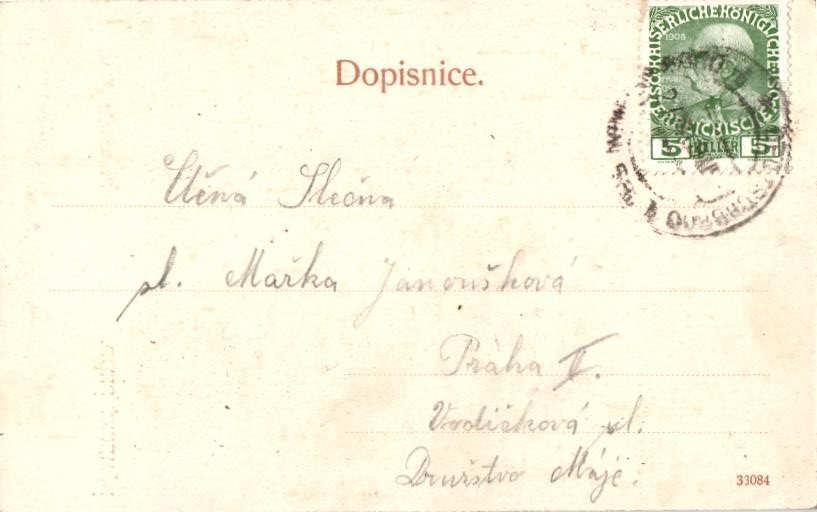 Dopisnice.
KAISERLICHE KÖNIGLICHE
1908
ÖSTERREICHISCHE POST
5 HELLER 5
Ctěná Slečna
sl. Mařka Janoušková
Praha II.
Vodičková ul.
Družstvo Máje.
33084